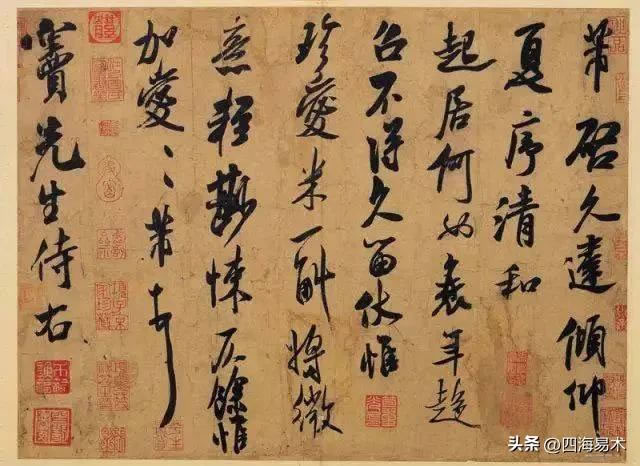 芾啓久違傾仰
夏序清和
起居何如衰年趨
召不得久留伏惟
珍愛米一斛將微
意輕尠悚仄餘惟
加愛〻芾頓首
竇先生侍右
头条 @四海易术